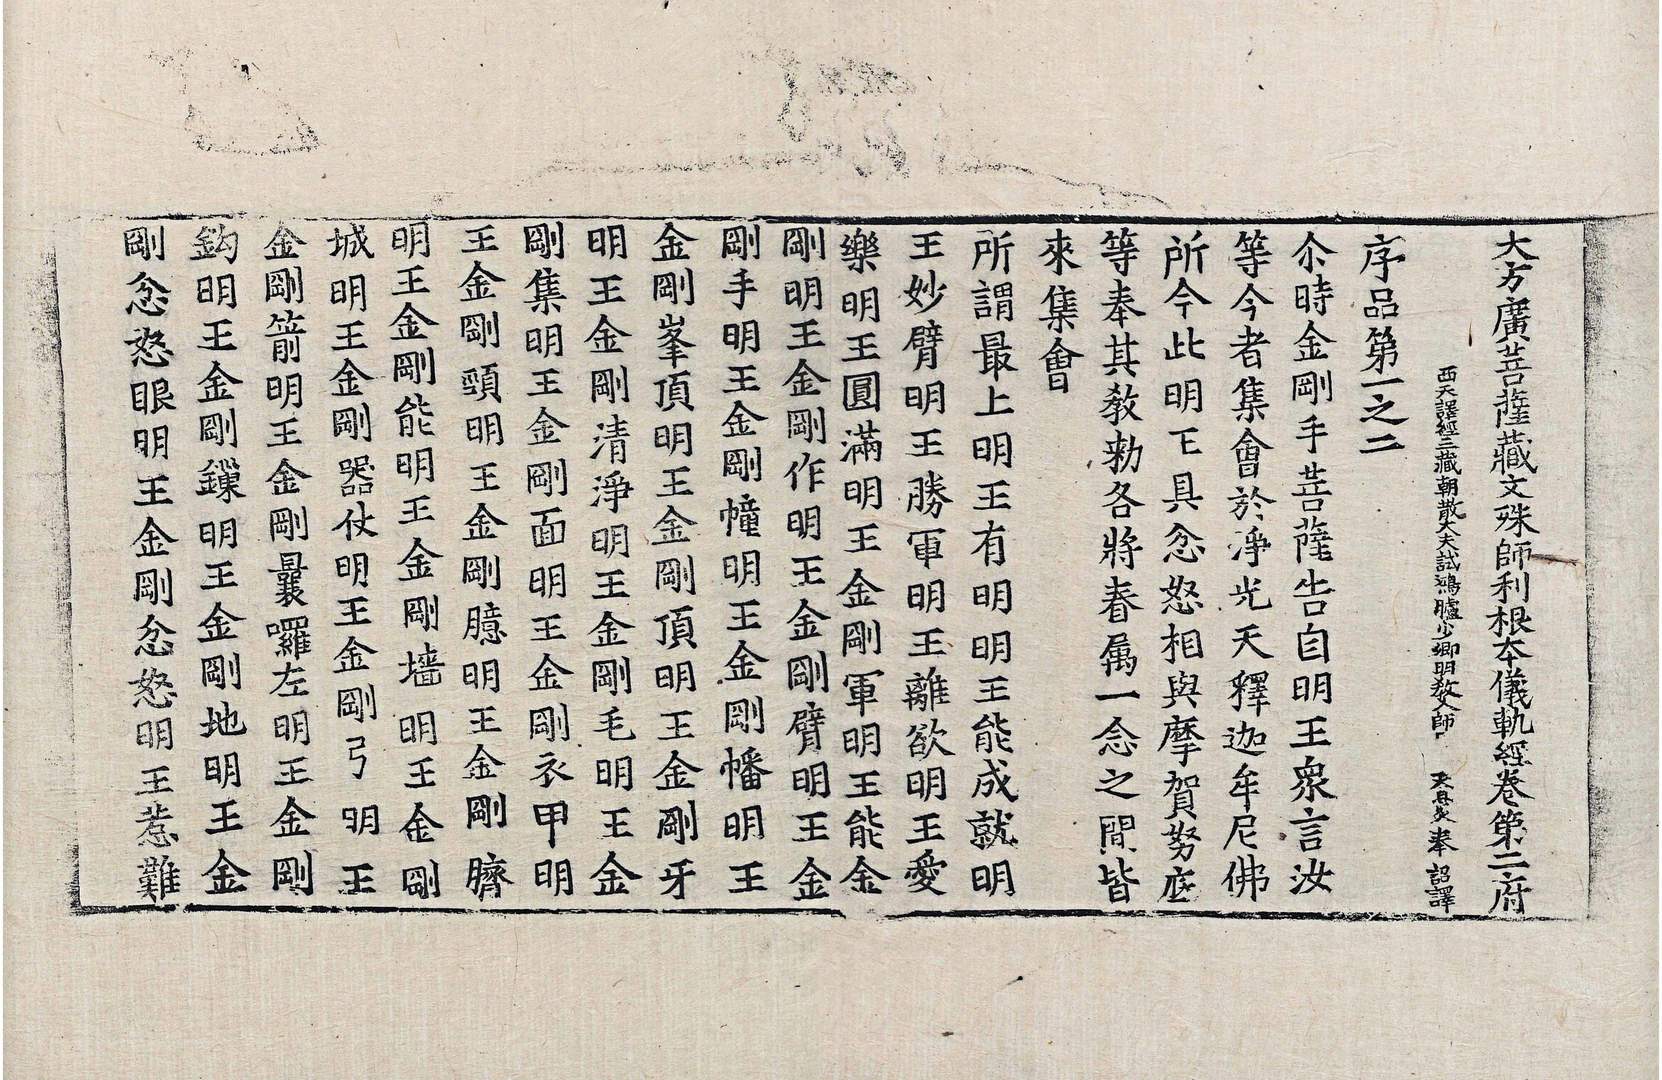 大方廣菩薩藏文殊師利根本儀軌經卷第二府
西天譯經三藏朝散大夫試鴻臚少卿明教大師 天息災奉 詔譯
序品第一之二
尒時金剛手菩薩告自明王眾言汝
等今者集會於淨光天釋迦牟尼佛
所今此明王具忿怒相與摩賀努底
等奉其教勑各將眷属一念之間皆
來集會
所謂最上明王有明明王能成就明
王妙臂明王勝軍明王離欲明王愛
樂明王圓滿明王金剛軍明王能金
剛明王金剛作明王金剛臂明王金
剛手明王金剛幢明王金剛幡明王
金剛峯頂明王金剛頂明王金剛牙
明王金剛清淨明王金剛毛明王金
剛集明王金剛面明王金剛衣甲明
王金剛頸明王金剛臆明王金剛臍
明王金剛能明王金剛墻明王金剛
城明王金剛器仗明王金剛弓明王
金剛箭明王金剛曩囉左明王金剛
鈎明王金剛鏁明王金剛地明王金
剛忿怒眼明王金剛忿怒明王惹難